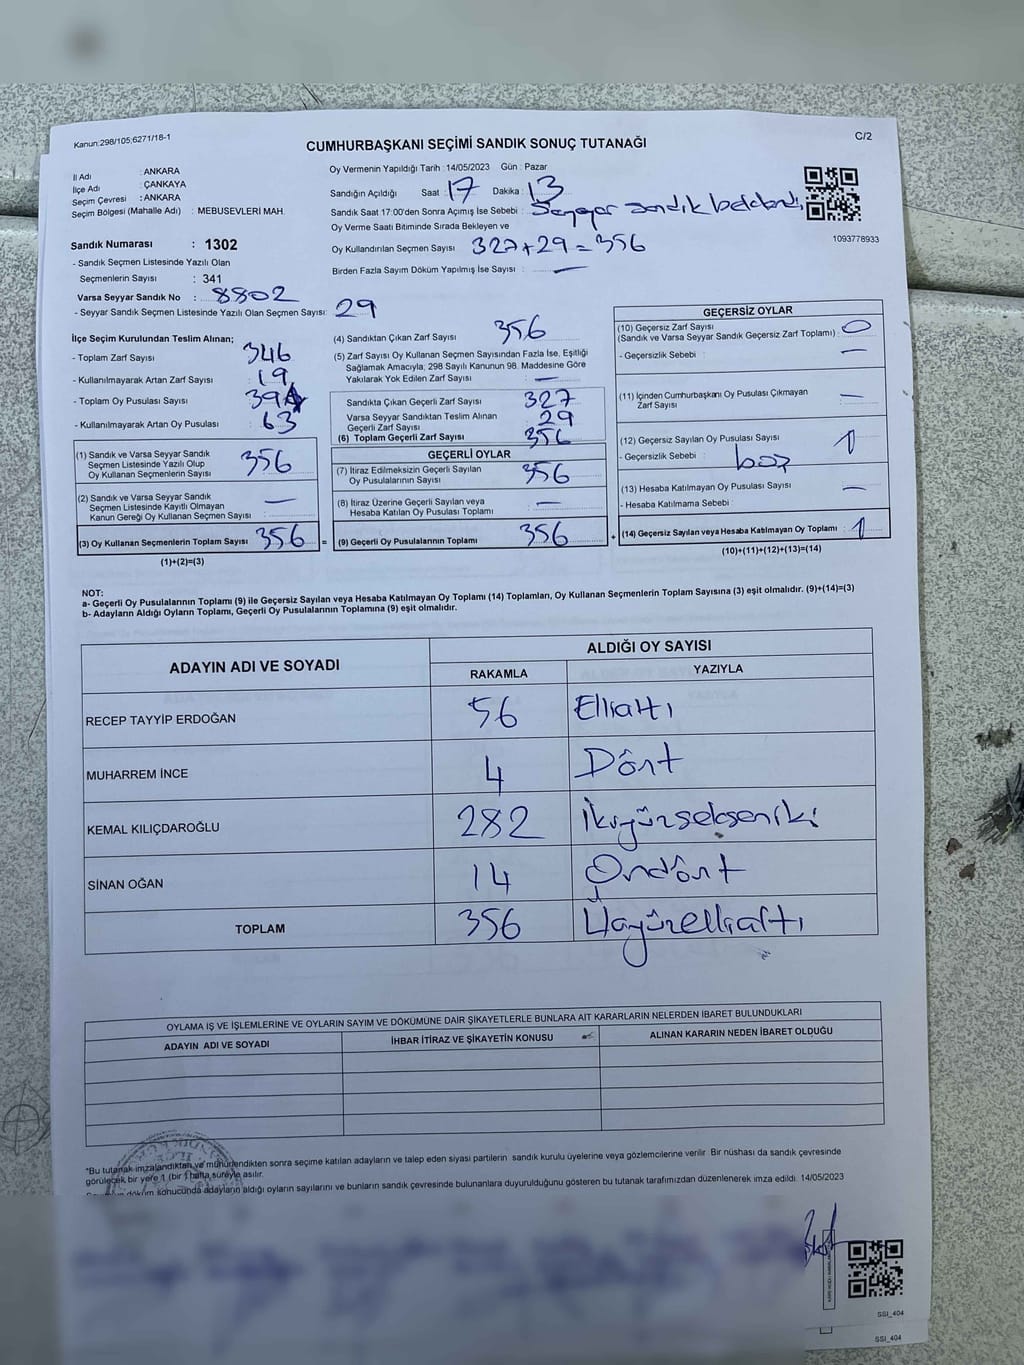 Kanun:298/105;6271/18-1
C/2
CUMHURBAŞKANI SEÇİMİ SANDIK SONUÇ TUTANAĞI
İl Adı : ANKARA
İlçe Adı : ÇANKAYA
Seçim Çevresi : ANKARA
Seçim Bölgesi (Mahalle Adı) : MEBUSEVLERİ MAH.
Oy Vermenin Yapıldığı Tarih : 14/05/2023 Gün : Pazar
Sandığın Açıldığı Saat : 17 Dakika : 13
Sandık Saat 17:00'den Sonra Açımış İse Sebebi : Seyyar sandık beklendi
Oy Verme Saati Bitiminde Sırada Bekleyen ve
Oy Kullandırılan Seçmen Sayısı 327+29=356
Birden Fazla Sayım Döküm Yapılmış İse Sayısı : —
1093778933
Sandık Numarası : 1302
- Sandık Seçmen Listesinde Yazılı Olan
Seçmenlerin Sayısı : 341
Varsa Seyyar Sandık No : 8802
- Seyyar Sandık Seçmen Listesinde Yazılı Olan Seçmen Sayısı: 29
İlçe Seçim Kurulundan Teslim Alınan;
- Toplam Zarf Sayısı 346
- Kullanılmayarak Artan Zarf Sayısı : 19
- Toplam Oy Pusulası Sayısı
- Kullanılmayarak Artan Oy Pusulası : 63
(1) Sandık ve Varsa Seyyar Sandık
Seçmen Listesinde Yazılı Olup
Oy Kullanan Seçmenlerin Sayısı 356
(2) Sandık ve Varsa Seyyar Sandık
Seçmen Listesinde Kayıtlı Olmayan
Kanun Gereği Oy Kullanan Seçmen Sayısı : —
(3) Oy Kullanan Seçmenlerin Toplam Sayısı 356 =
(1)+(2)=(3)
(4) Sandıktan Çıkan Zarf Sayısı 356
(5) Zarf Sayısı Oy Kullanan Seçmen Sayısından Fazla İse, Eşitliği
Sağlamak Amacıyla, 298 Sayılı Kanunun 98. Maddesine Göre
Yakılarak Yok Edilen Zarf Sayısı : —
Sandıkta Çıkan Geçerli Zarf Sayısı 327
Varsa Seyyar Sandıktan Teslim Alınan
Geçerli Zarf Sayısı 29
(6) Toplam Geçerli Zarf Sayısı 356
GEÇERLİ OYLAR
(7) İtiraz Edilmeksizin Geçerli Sayılan
Oy Pusulalarının Sayısı 356
(8) İtiraz Üzerine Geçerli Sayılan veya
Hesaba Katılan Oy Pusulası Toplamı —
(9) Geçerli Oy Pusulalarının Toplamı 356 +
GEÇERSİZ OYLAR
(10) Geçersiz Zarf Sayısı : 0
(Sandık ve Varsa Seyyar Sandık Geçersiz Zarf Toplamı)
- Geçersizlik Sebebi : —
(11) İçinden Cumhurbaşkanı Oy Pusulası Çıkmayan
Zarf Sayısı : —
(12) Geçersiz Sayılan Oy Pusulası Sayısı : 1
- Geçersizlik Sebebi : boş
(13) Hesaba Katılmayan Oy Pusulası Sayısı : —
- Hesaba Katılmama Sebebi :
(14) Geçersiz Sayılan veya Hesaba Katılmayan Oy Toplamı : 1
(10)+(11)+(12)+(13)=(14)
NOT:
a- Geçerli Oy Pusulalarının Toplamı (9) ile Geçersiz Sayılan veya Hesaba Katılmayan Oy Toplamı (14) Toplamları, Oy Kullanan Seçmenlerin Toplam Sayısına (3) eşit olmalıdır. (9)+(14)=(3)
b- Adayların Aldığı Oyların Toplamı, Geçerli Oy Pusulalarının Toplamına (9) eşit olmalıdır.
ADAYIN ADI VE SOYADI
ALDIĞI OY SAYISI
RAKAMLA YAZIYLA
RECEP TAYYİP ERDOĞAN 56 Elliattı
MUHARREM İNCE 4 Dört
KEMAL KILIÇDAROĞLU 282 İkiyüzseksen iki
SİNAN OĞAN 14 Ondört
TOPLAM 356 Üçyüzelliattı
OYLAMA İŞ VE İŞLEMLERİNE VE OYLARIN SAYIM VE DÖKÜMÜNE DAİR ŞİKAYETLERLE BUNLARA AİT KARARLARIN NELERDEN İBARET BULUNDUKLARI
ADAYIN ADI VE SOYADI İHBAR İTİRAZ VE ŞİKAYETİN KONUSU ALINAN KARARIN NEDEN İBARET OLDUĞU
*Bu tutanak imzalandıktan ve mühürlendikten sonra seçime katılan adayların ve talep eden siyasi partilerin sandık kurulu üyelerine veya gözlemcilerine verilir. Bir nüshası da sandık çevresinde
görülecek bir yere 1 (bir) hafta süreyle asılır.
döküm sonucunda adayların aldığı oyların sayılarını ve bunların sandık çevresinde bulunanlara duyurulduğunu gösteren bu tutanak tarafımızdan düzenlenerek imza edildi. 14/05/2023
SSI_404
SSI_404